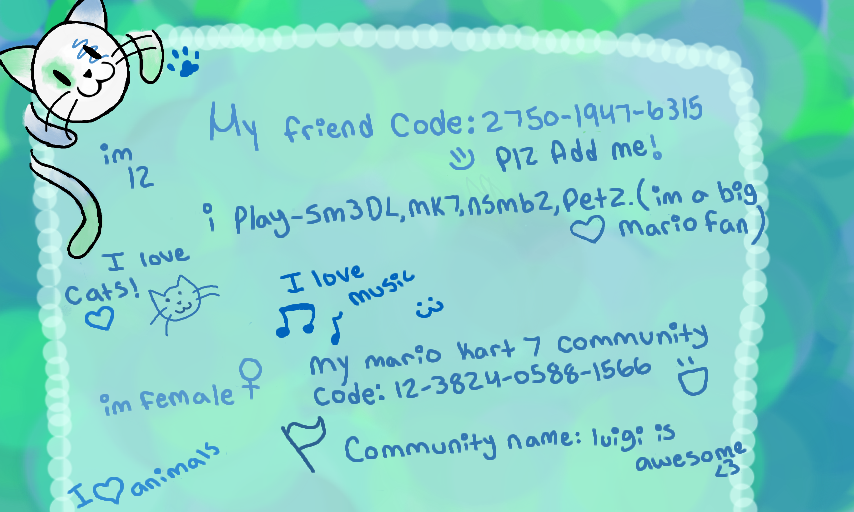 My friend Code: 2750-1947-6315
plz Add me!
im
12
i Play-Sm3DL, mk7, nsmb2, Petz. (im a big
mario fan)
I love
cats!
I love
music
my mario kart 7 community
Code: 12-3824-0588-1566
im female
Community name: luigi is
awesome
<3
I ♡ animals